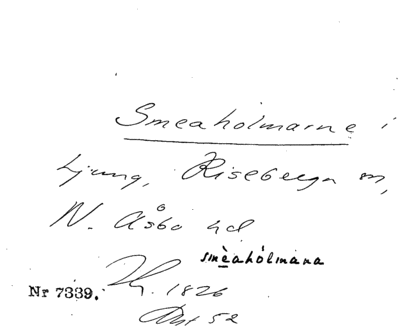 Smeaholmarne i
Ljung, Riseberga sn,
N. Åsbo hd
smèahólmana
Nr 7339. 1826
52